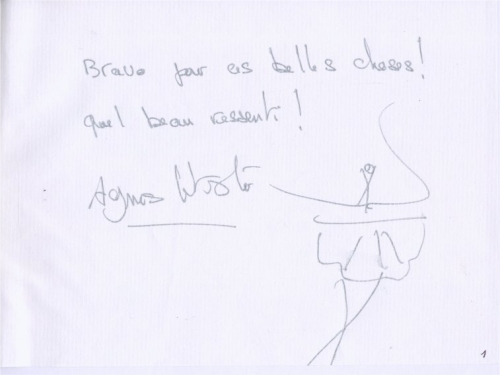 Bravo pour ces belles choses!
quel beau ressenti!
Agnès
1